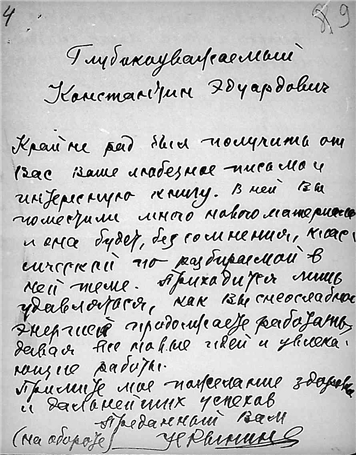 4
89
Глубокоуважаемый
Константин Эдуардович
Крайне рад был получить от
Вас Ваше любезное письмо и
интересную книгу. В ней Вы
поместили много нового материала
и она будет, без сомнения, клас-
сической по разбираемой в
ней теме. Приходится лишь
удивляться, как Вы с неослабной
энергией продолжаете работать,
давая все новые идеи и увлека-
ющие работы.
Примите мое пожелание здоровья
и дальнейших успехов
Преданный Вам
(на обороте) Н Рынин